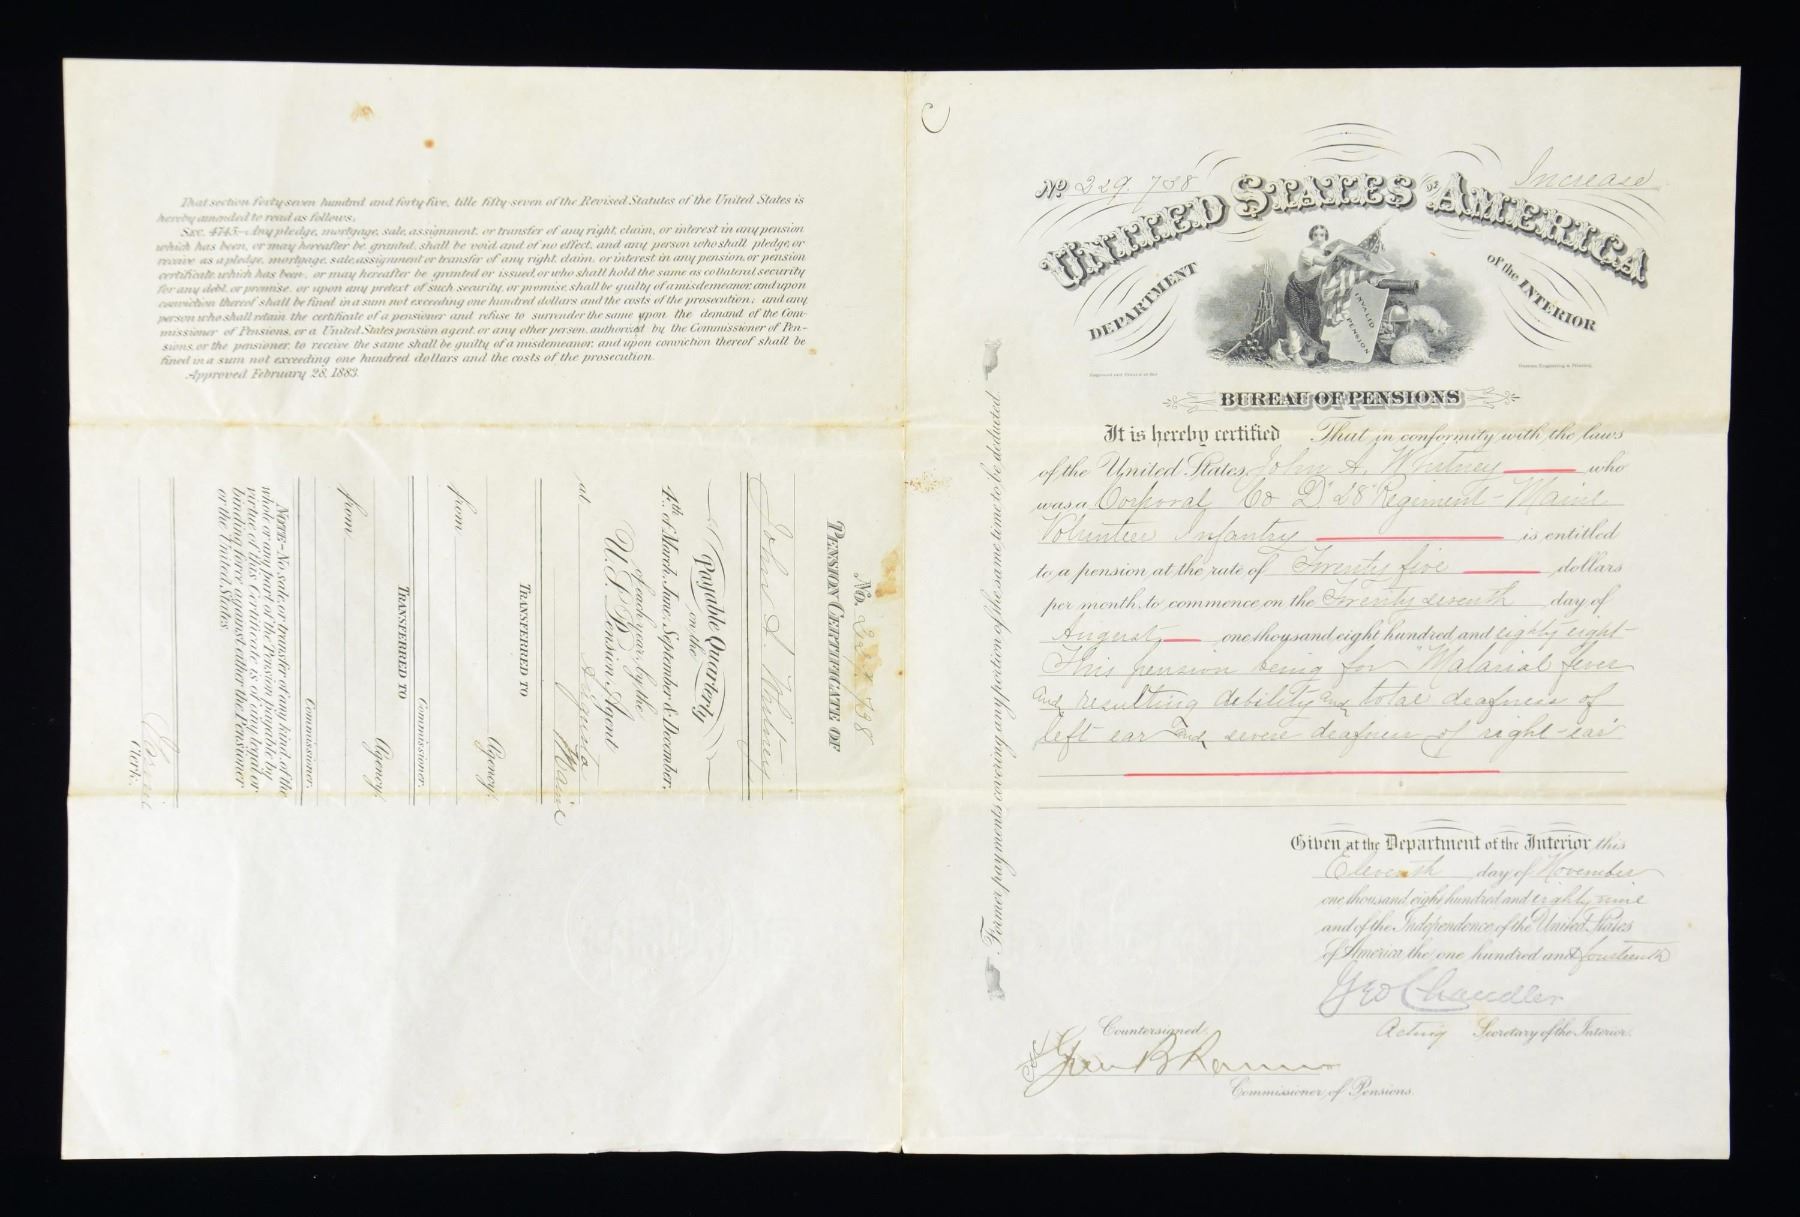 That section forty-seven hundred and forty-five, title fifty-seven of the Revised Statutes of the United States is
hereby amended to read as follows:
Sec. 4745.—Any pledge, mortgage, sale, assignment, or transfer of any right, claim, or interest in any pension
which has been, or may hereafter be, granted, shall be void and of no effect, and any person who shall pledge, or
receive as a pledge, mortgage, sale, assignment or transfer of any right, claim, or interest in any pension, or pension
certificate, which has been, or may hereafter be granted or issued, or who shall hold the same as collateral security
for any debt, or promise, or upon any pretext of such security, or promise, shall be guilty of a misdemeanor, and upon
conviction thereof shall be fined in a sum not exceeding one hundred dollars and the costs of the prosecution; and any
person who shall retain the certificate of a pensioner and refuse to surrender the same upon the demand of the Com-
missioner of Pensions, or a United States pension agent, or any other person, authorized by the Commissioner of Pen-
sions, or the pensioner, to receive the same shall be guilty of a misdemeanor, and upon conviction thereof shall be
fined in a sum not exceeding one hundred dollars and the costs of the prosecution.
Approved February 28, 1883.
No. 738
PENSION CERTIFICATE OF
John A. Whitney
Payable Quarterly
on the
4th of March, June, September & December,
of each year, by the
U.S. Pension Agent
at Augusta
Maine
TRANSFERRED TO
Agency.
from
Commissioner.
TRANSFERRED TO
Agency.
from
Commissioner.
NOTE—No sale or transfer of any kind, of the
whole or any part of the Pension payable by
virtue of this Certificate is of any legal or
binding force against either the Pensioner
or the United States.
Clerk.
C
No 229.738
Increase
UNITED STATES OF AMERICA
DEPARTMENT of the INTERIOR
INVALID
PENSION
BUREAU OF PENSIONS
It is hereby certified That in conformity with the laws
of the United States John A. Whitney who
was a Corporal Co "D" 28" Regiment - Maine
Volunteer Infantry is entitled
to a pension at the rate of Twenty five dollars
per month, to commence on the Twenty seventh day of
August, one thousand eight hundred and eighty eight-
This pension being for "Malarial fever
and resulting debility and total deafness of
left ear and severe deafness of right-ear"
Former payments covering any portion of the same time to be deducted.
Given at the Department of the Interior this
Eleventh day of November
one thousand eight hundred and eighty nine
and of the Independence of the United States
of America the one hundred and fourteenth
Geo Chandler
Acting Secretary of the Interior.
Countersigned,
Green B Raum
Commissioner of Pensions.